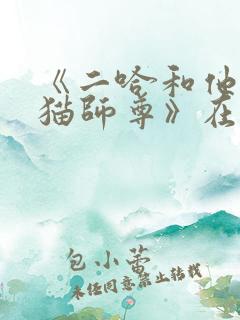 《二哈和他
猫師尊》在
包小蕾
未经同意禁止转载